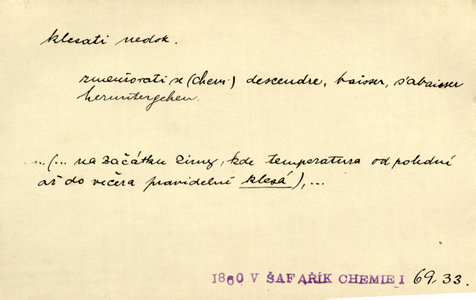 klesati nedok.
zmenšovati se (chem.) descendre, baisser, s'abaisser
heruntergehen.
...(... na začátku zimy, kde temperatura od polední
až do večera pravidelně klesá), ...
1860 V ŠAFAŘÍK CHEMIE I 69.33.